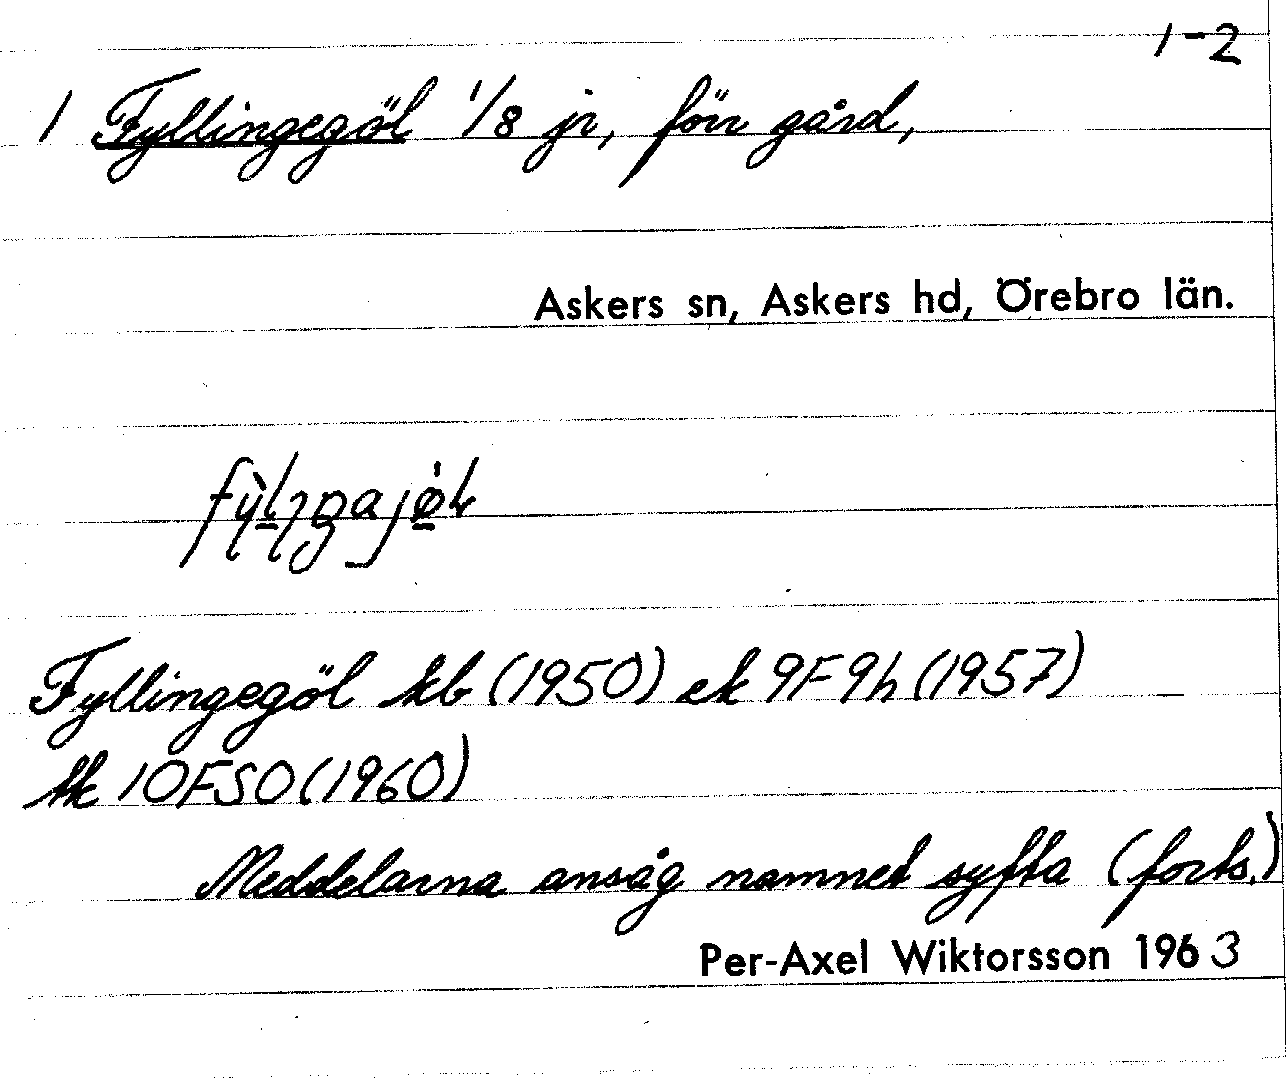 1-2
1 Fyllingegöl 1/8 jr, förr gård,
Askers sn, Askers hd, Örebro län.
Fyllingegöl kb (1950) ek 9F9h (1957)
tk 10FSO (1960)
Meddelarna ansåg namnet syfta (forts.)
Per-Axel Wiktorsson 1963